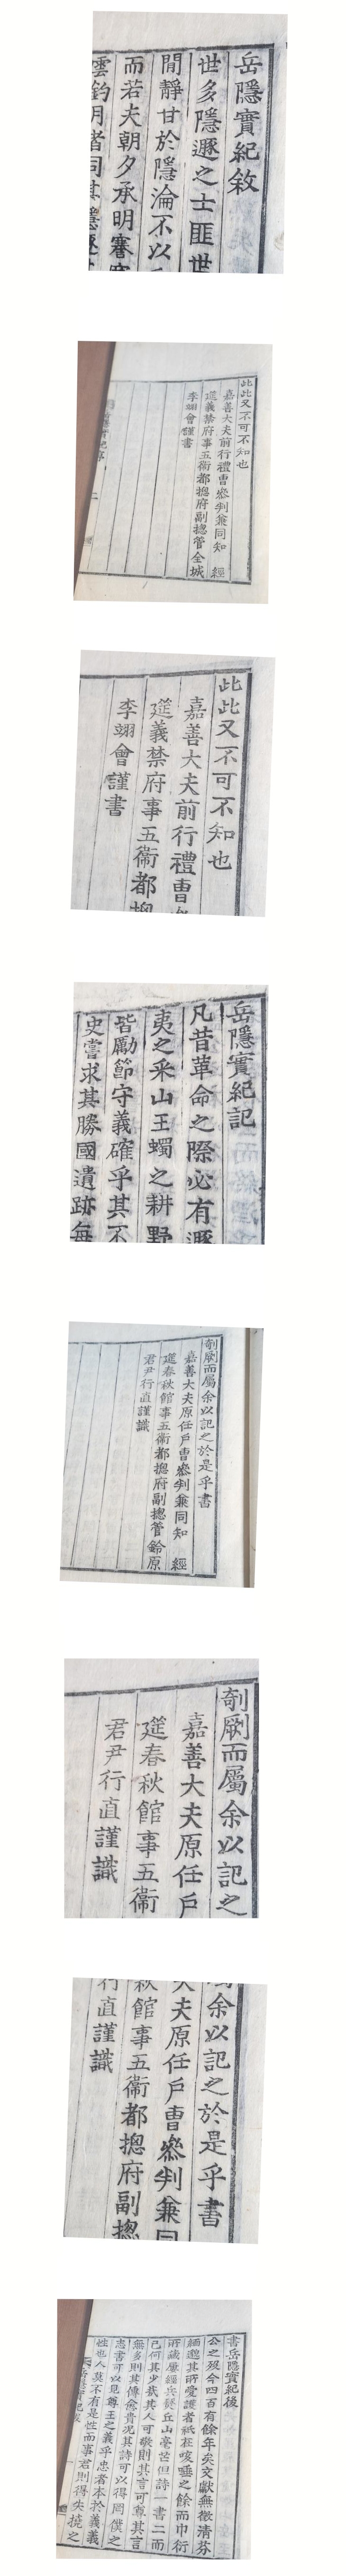 岳隱實紀敘
世多隱遯之士匪世
閒靜甘於隱淪不以
而若夫朝夕承明騫
雲釣月者同其隱逐
此此又不可不知也
嘉善大夫前行禮曹叅判兼同知 經
筵義禁府事五衞都摠府副摠管全城
李翊會謹書
此此又不可不知也
嘉善大夫前行禮曹
筵義禁府事五衞都摠
李翊會謹書
岳隱實紀記
凡昔革命之際必有遯
夷之采山王蠋之耕野
皆勵節守義確乎其不
史嘗求其勝國遺跡每
剞劂而屬余以記之於是乎書
嘉善大夫原任戶曹叅判兼同知 經
筵春秋館事五衞都摠府副摠管鈴原
君尹行直謹識
剞劂而屬余以記之
嘉善大夫原任戶
筵春秋館事五衞
君尹行直謹識
余以記之於是乎書
大夫原任戶曹叅判兼同
秋館事五衞都摠府副摠
行直謹識
書岳隱實紀後
公之歿今四百有餘年矣文獻無徵清芬
緬邈其所愛護者秖在咳唾之餘而巾衍
所藏屢經兵燹丘山毫芒但詩一書二而
己何其少哉其人可敬則其言可尊其言
無多則其傳愈貴況其詩可以得罔僕之
志書可以見尊王之義乎忠者本於義義
性也人莫不有是性而事君則得失撓之